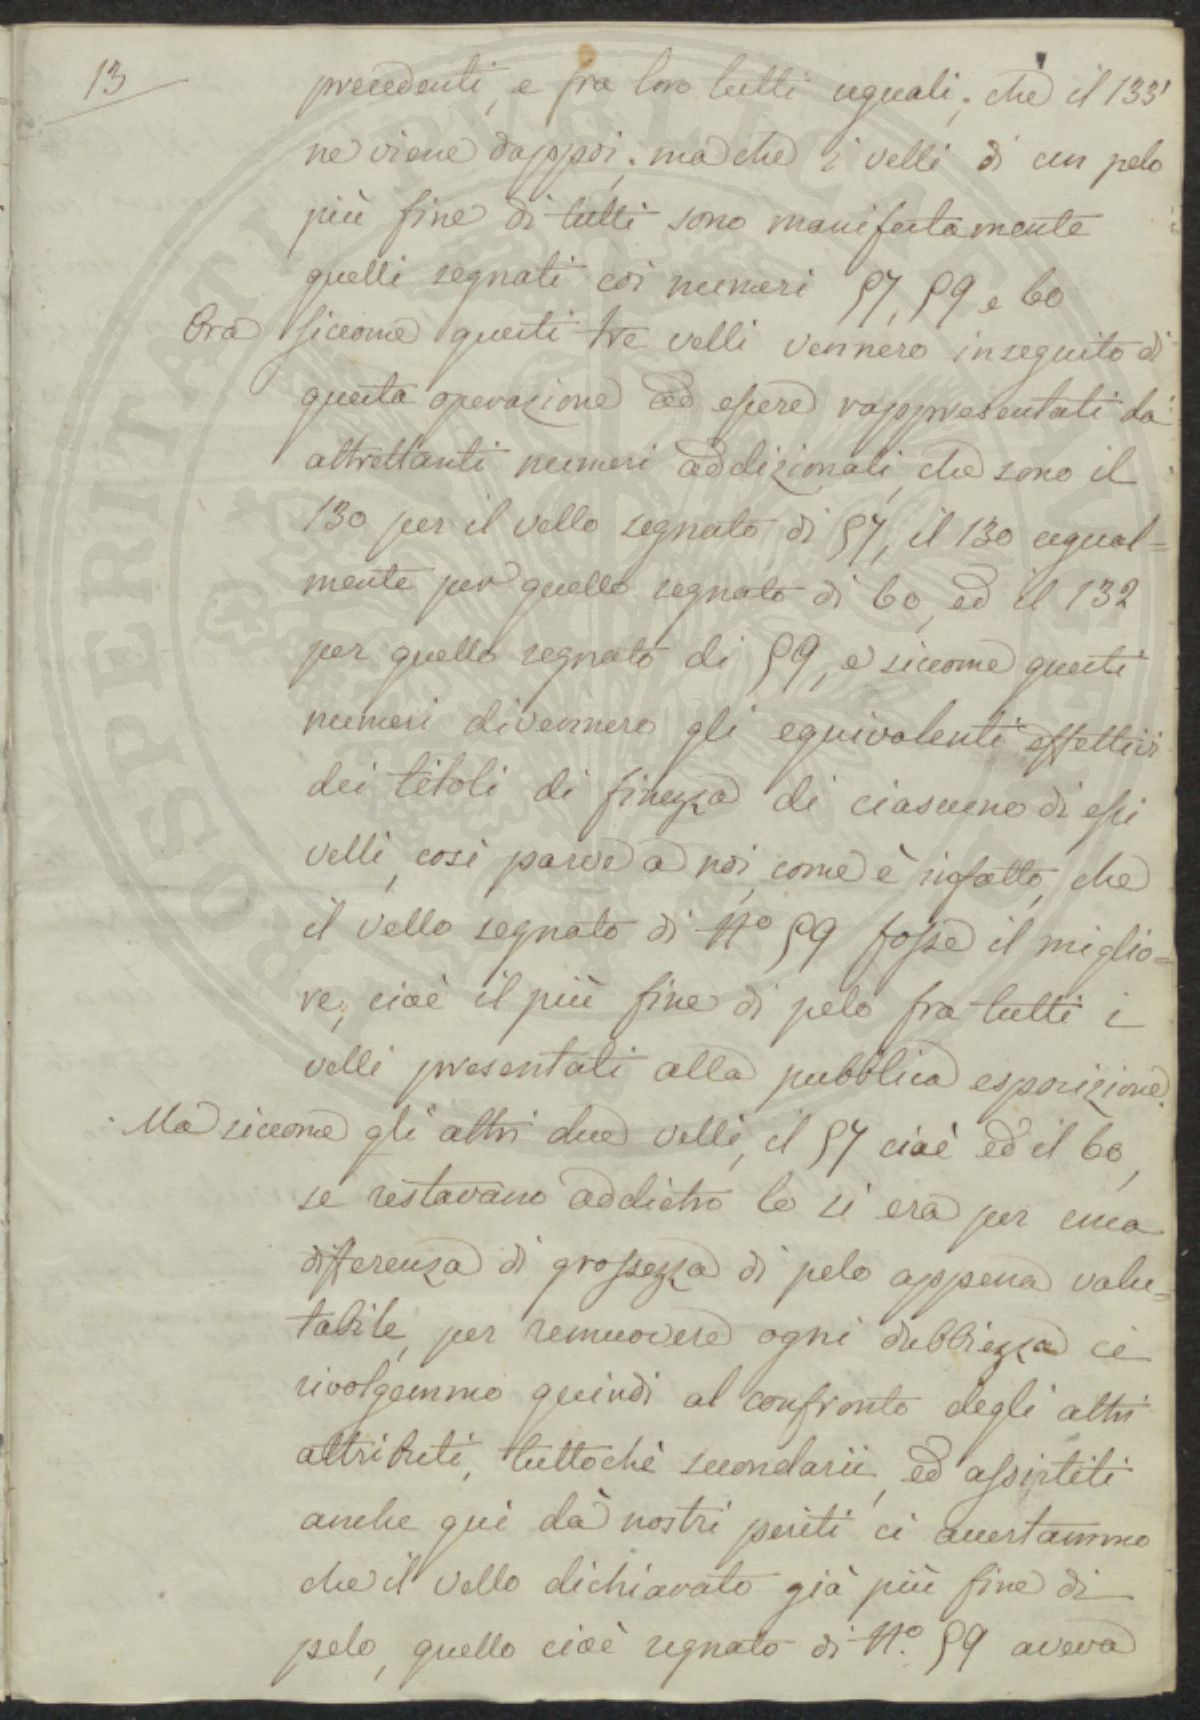 13
precedenti, e fra loro tutti uguali; che il 133
ne viene dappoi; ma che i velli di un pelo
più fine di tutti sono manifestamente
quelli segnati coi numeri 57, 59 e 60
Ora siccome questi tre velli vennero in seguito di
questa operazione ad essere rappresentati da
altrettanti numeri addizionali, che sono il
130 per il vello segnato di 57, il 130 egual=
mente per quello segnato di 60, ed il 132
per quello segnato di 59, e siccome questi
numeri divennero gli equivalenti effettivi
dei titoli di finezza di ciascuno di essi
velli, così parve a noi, come è infatto, che
il vello segnato di No 59 fosse il miglio=
re, cioè il più fine di pelo fra tutti i
velli presentati alla pubblica esposizione.
Ma siccome gli altri due velli, il 57 cioè ed il 60,
se restavano addietro lo si era per una
differenza di grossezza di pelo appena valu=
tabile, per remuovere ogni dubbiezza ci
rivolgemmo quindi al confronto degli altri
attributi, tuttochè secondarii, ed assistiti
anche qui dà nostri periti ci accertammo
che il vello dichiarato già più fine di
pelo, quello cioè segnato di No. 59 aveva
PROSPERITATI PUBLICAE